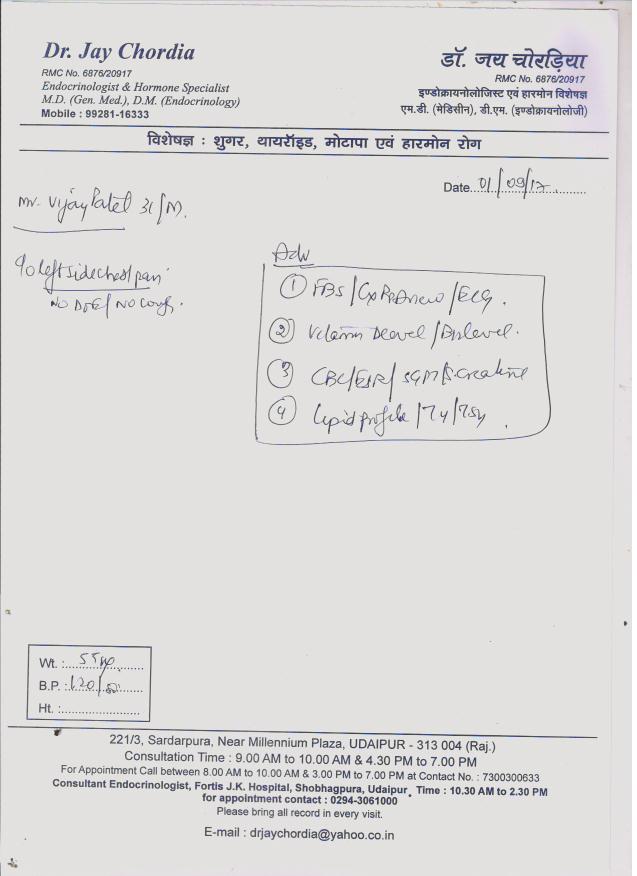 Dr. Jay Chordia
RMC No. 6876/20917
Endocrinologist & Hormone Specialist
M.D. (Gen. Med.), D.M. (Endocrinology)
Mobile : 99281-16333
डॉ. जय चोरड़िया
RMC No. 6876/20917
इण्डोक्रायनोलोजिस्ट एवं हारमोन विशेषज्ञ
एम.डी. (मेडिसीन), डी.एम. (इण्डोक्रायनोलोजी)
विशेषज्ञ : शुगर, थायरॉइड, मोटापा एवं हारमोन रोग
Date 01/09/17
Mr. Vijay Patel 31/M.
c/o left side chest pain
No / No cough.
Adv
① FBS / / ECG.
② Vitamin D level / B12 level.
③ CBC/ESR/ / S. Creatine
④ Lipid profile / T4 / TSH
Wt. : 55
B.P. : 120/80
Ht. :
221/3, Sardarpura, Near Millennium Plaza, UDAIPUR - 313 004 (Raj.)
Consultation Time : 9.00 AM to 10.00 AM & 4.30 PM to 7.00 PM
For Appointment Call between 8.00 AM to 10.00 AM & 3.00 PM to 7.00 PM at Contact No. : 7300300633
Consultant Endocrinologist, Fortis J.K. Hospital, Shobhagpura, Udaipur, Time : 10.30 AM to 2.30 PM
for appointment contact : 0294-3061000
Please bring all record in every visit.
E-mail : drjaychordia@yahoo.co.in